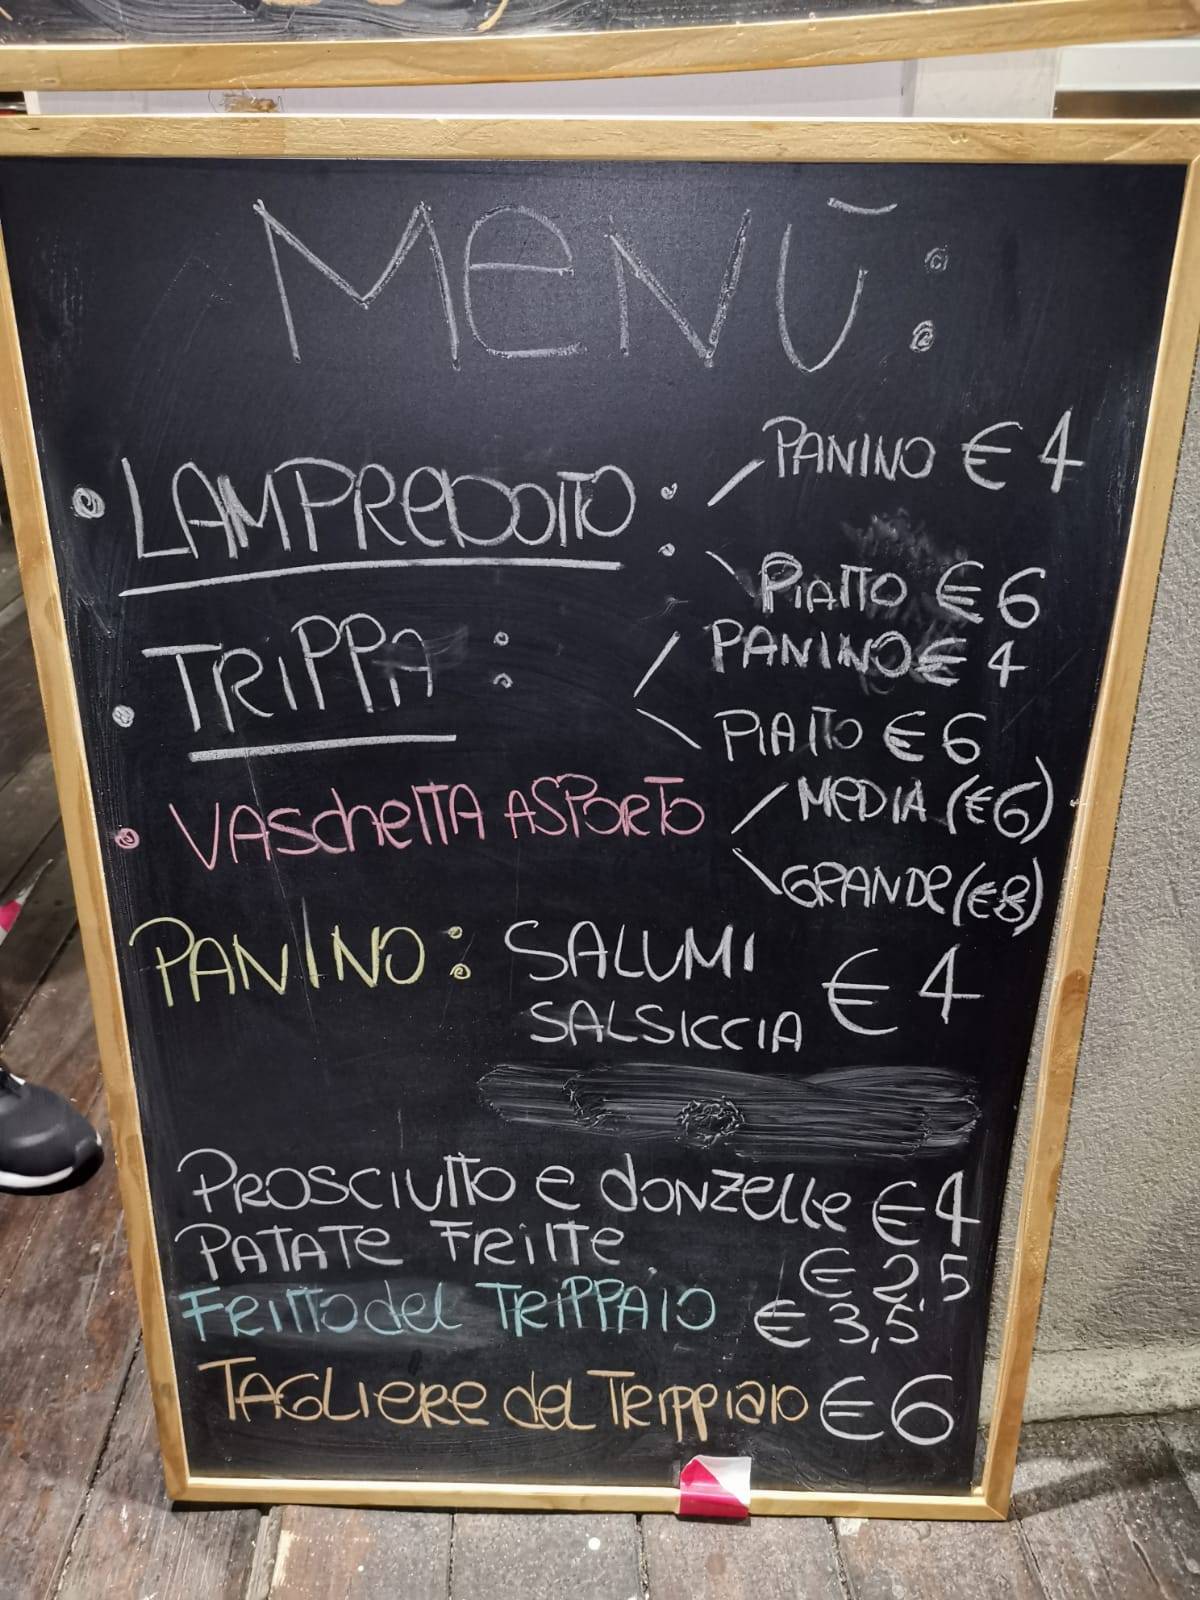 MENÙ:
• LAMPREDOTTO: PANINO € 4
PIATTO € 6
• TRIPPA: PANINO € 4
PIATTO € 6
• VASCHETTA ASPORTO MEDIA (€6)
GRANDE (€8)
PANINO: SALUMI € 4
SALSICCIA
PROSCIUTTO E DONZELLE € 4
PATATE FRITTE € 2,5
FRITTO del TRIPPAIO € 3,5
TAGLIERE del TRIPPIAIO € 6